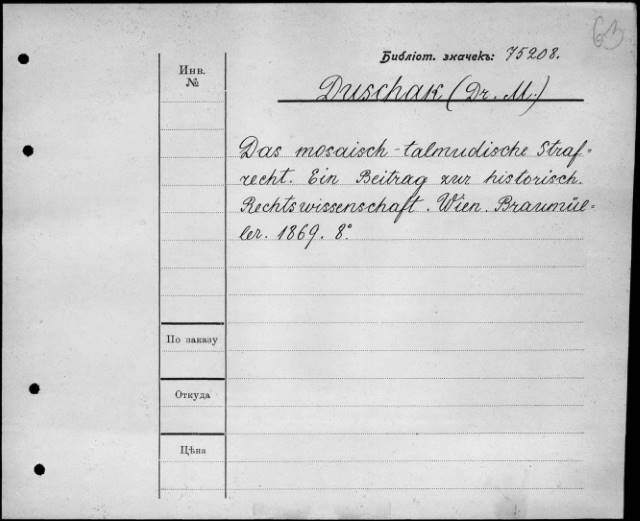 63
Библіот. значекъ: 75208.
Инв.
№
Duschak (Dr. M.)
Das mosaisch-talmudische Straf=
recht. Ein Beitrag zur historisch.
Rechtswissenschaft. Wien. Braumül=
ler. 1869. 8°
По заказу
Откуда
Цѣна